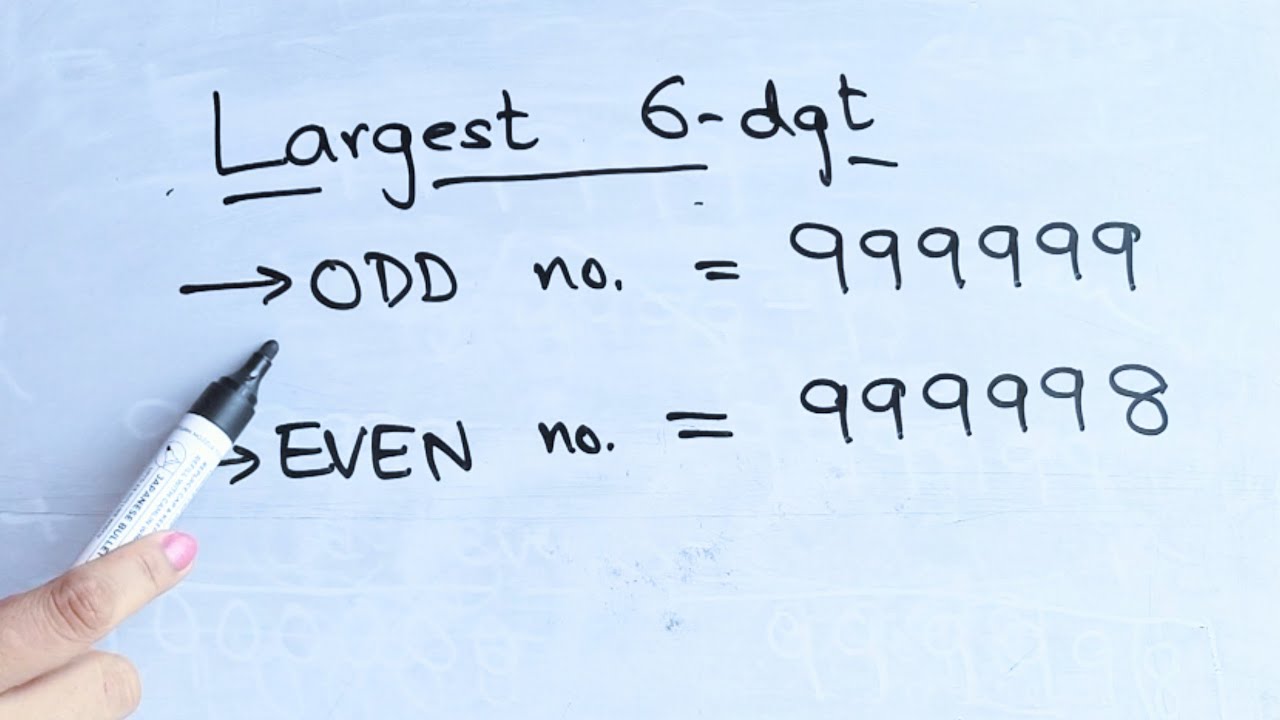 Largest 6-dgt
→ ODD no. = 999999
→ EVEN no. = 999998
JAPANESE BULLET